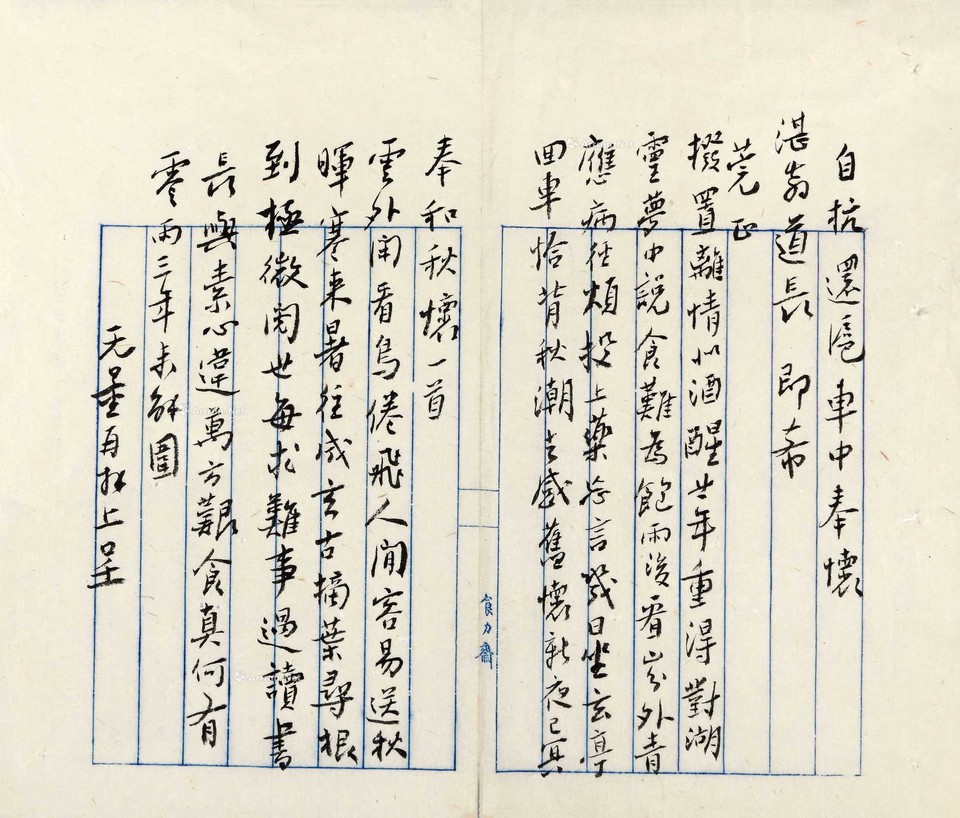 自杭還滬車中奉懷
湛翁道長 即希
莞正
撥置離情似酒醒廿年重得對湖
靈夢中說食難為飽雨後看山分外青
應病徑煩投上藥忘言幾日坐玄亭
回車恰背秋潮去感舊懷新夜已冥
食力齋
奉和秋懷一首
雲外閑看鳥倦飛人間容易送秋
暉寒來暑往成玄古摘葉尋根
到極微閱世每於難事過讀書
長與素心違萬方艱食真何有
零雨三年未解圍
无量再拜上呈